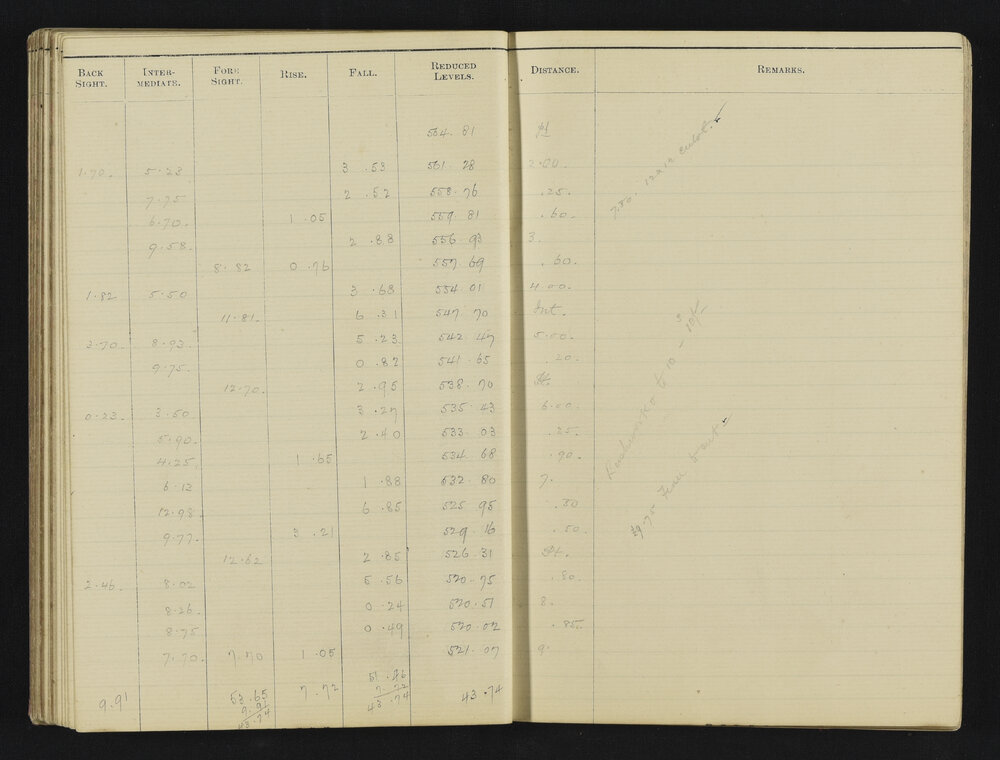 BACK SIGHT. INTER-MEDIATE. FORE SIGHT. RISE. FALL. REDUCED LEVELS. DISTANCE. REMARKS.
564.81 pt
1.70 5.23 3.53 561.28 2.00
7.75 2.52 558.76 .25
6.70 1.05 559.81 .60
9.58 2.88 556.93 3.
8.82 0.76 557.69 .60
1.82 5.50 3.68 554.01 4.00
11.81 6.31 547.70 Int.
2.70 8.93 5.23 542.47 5.00
9.75 0.82 541.65 .20
12.70 2.95 538.70
0.23 3.50 3.27 535.43 6.00
5.90 2.40 533.03 .25
4.25 1.65 534.68 .90
6.13 1.88 532.80 7.
12.98 6.85 525.95 .30
9.77 3.21 529.16 .50
12.62 2.85 526.31 Pt.
2.46 8.02 5.56 520.75 .80
8.26 0.24 520.51 8.
8.75 0.49 520.02 .85
7.70 7.70 1.05 521.07 9.
9.91 53.65 7.72 51.46 43.74
9.91 7.72
43.74 43.74